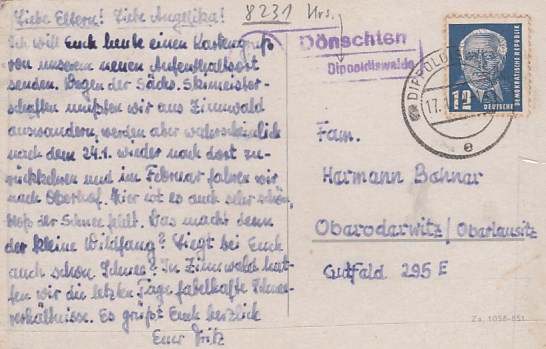 8231 Urs.
Liebe Eltern! Liebe Angelika!
Ich will Euch heute einen Kartengruß
von unserem neuen Aufenthaltsort
senden. Wegen der Sächs. Skimeister-
schaften mußten wir aus Zinnwald
auswandern, werden aber wahrscheinlich
nach dem 24.1. wieder nach dort zu-
rückkehren und im Februar fahren wir
nach Oberhof. Hier ist es auch sehr schön,
bloß der Schnee fehlt. Was macht denn
der kleine Wildfang? Liegt bei Euch
auch schon Schnee? In Zinnwald hat-
ten wir die letzten Tage fabelhafte Schnee-
verhältnisse. Es grüßt Euch herzlich
Euer Fritz
Dönschten
Dippoldiswalde
DIPPOLD
17.1
e
12
DEUTSCHE
DEMOKRATISCHE REPUBLIK
Fam.
Hermann Bohnar
Oberoderwitz/Oberlausitz
Gutfald 295 E
Za. 1058-851